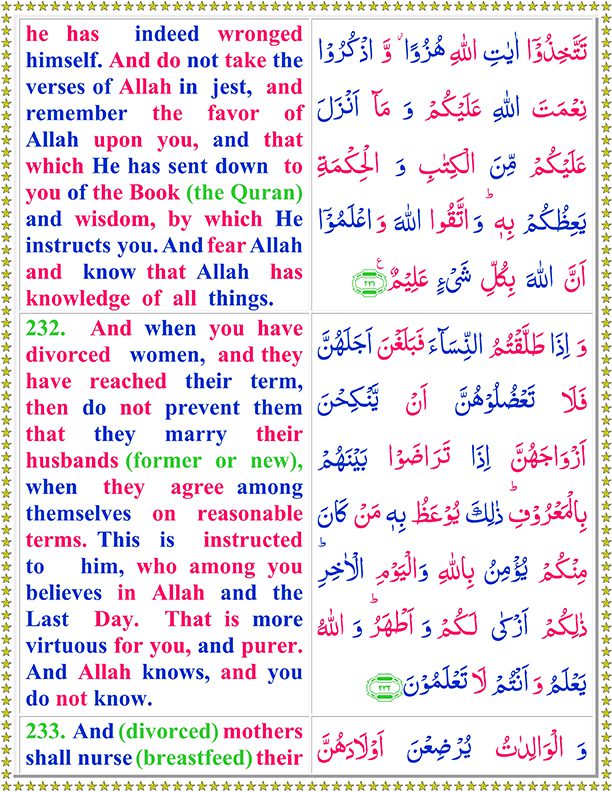 he has indeed wronged
himself. And do not take the
verses of Allah in jest, and
remember the favor of
Allah upon you, and that
which He has sent down to
you of the Book (the Quran)
and wisdom, by which He
instructs you. And fear Allah
and know that Allah has
knowledge of all things.
تَتَّخِذُوْٓا اٰيٰتِ اللّٰهِ هُزُوًا ۫ وَّ اذْكُرُوْا
نِعْمَتَ اللّٰهِ عَلَيْكُمْ وَ مَاۤ اَنْزَلَ
عَلَيْكُمْ مِّنَ الْكِتٰبِ وَ الْحِكْمَةِ
يَعِظُكُمْ بِهٖ ؕ وَ اتَّقُوا اللّٰهَ وَ اعْلَمُوْۤا
اَنَّ اللّٰهَ بِكُلِّ شَیْءٍ عَلِيْمٌ ۧ ﴿۲۳۱﴾
232. And when you have
divorced women, and they
have reached their term,
then do not prevent them
that they marry their
husbands (former or new),
when they agree among
themselves on reasonable
terms. This is instructed
to him, who among you
believes in Allah and the
Last Day. That is more
virtuous for you, and purer.
And Allah knows, and you
do not know.
وَ اِذَا طَلَّقْتُمُ النِّسَآءَ فَبَلَغْنَ اَجَلَهُنَّ
فَلَا تَعْضُلُوْهُنَّ اَنْ يَّنْكِحْنَ
اَزْوَاجَهُنَّ اِذَا تَرَاضَوْا بَيْنَهُمْ
بِالْمَعْرُوْفِ ؕ ذٰلِكَ يُوْعَظُ بِهٖ مَنْ كَانَ
مِنْكُمْ يُؤْمِنُ بِاللّٰهِ وَالْيَوْمِ الْاٰخِرِ ؕ
ذٰلِكُمْ اَزْكٰی لَكُمْ وَ اَطْهَرُ ؕ وَ اللّٰهُ
يَعْلَمُ وَ اَنْتُمْ لَا تَعْلَمُوْنَ ﴿۲۳۲﴾
233. And (divorced) mothers
shall nurse (breastfeed) their
وَ الْوَالِدٰتُ يُرْضِعْنَ اَوْلَادَهُنَّ